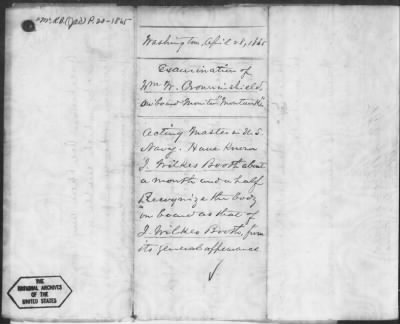 McR.B. (JAD) P. 20-1865
Washington, April 28, 1865
Examination of
Wm W. Crowninshield
on board Monitor "Montauk"
Acting Master in U.S.
Navy. Have known
J. Wilkes Booth about
a month and a half
Recognize the body
on board as that of
J. Wilkes Booth, from
its general appearance
THE
NATIONAL ARCHIVES
OF THE
UNITED STATES